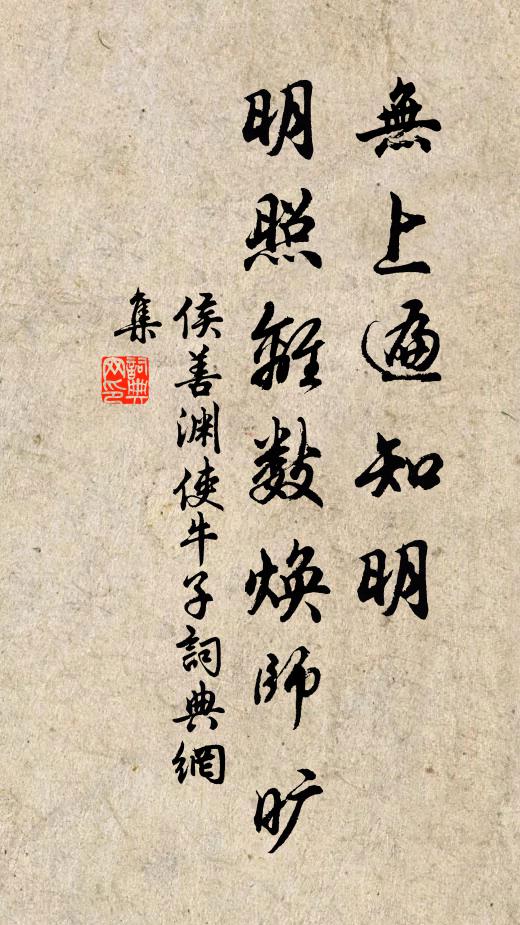 無上遍知明
明照離數煥師旷
侯善渊使牛子詞典網
集
詞典網印